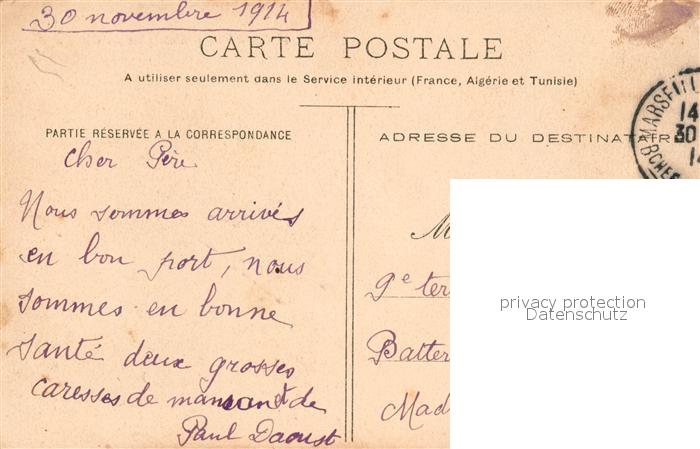 30 novembre 1914
CARTE POSTALE
A utiliser seulement dans le Service intérieur (France, Algérie et Tunisie)
PARTIE RÉSERVÉE A LA CORRESPONDANCE
ADRESSE DU DESTINATAIRE
MARSEILL
14
30
1
BCHES
Cher Père
Nous sommes arrivés
en bon port, nous
sommes en bonne
santé deux grosses
caresses de maman et de
Paul Daoust
M
9e ter
Batter
Mad
privacy protection
Datenschutz